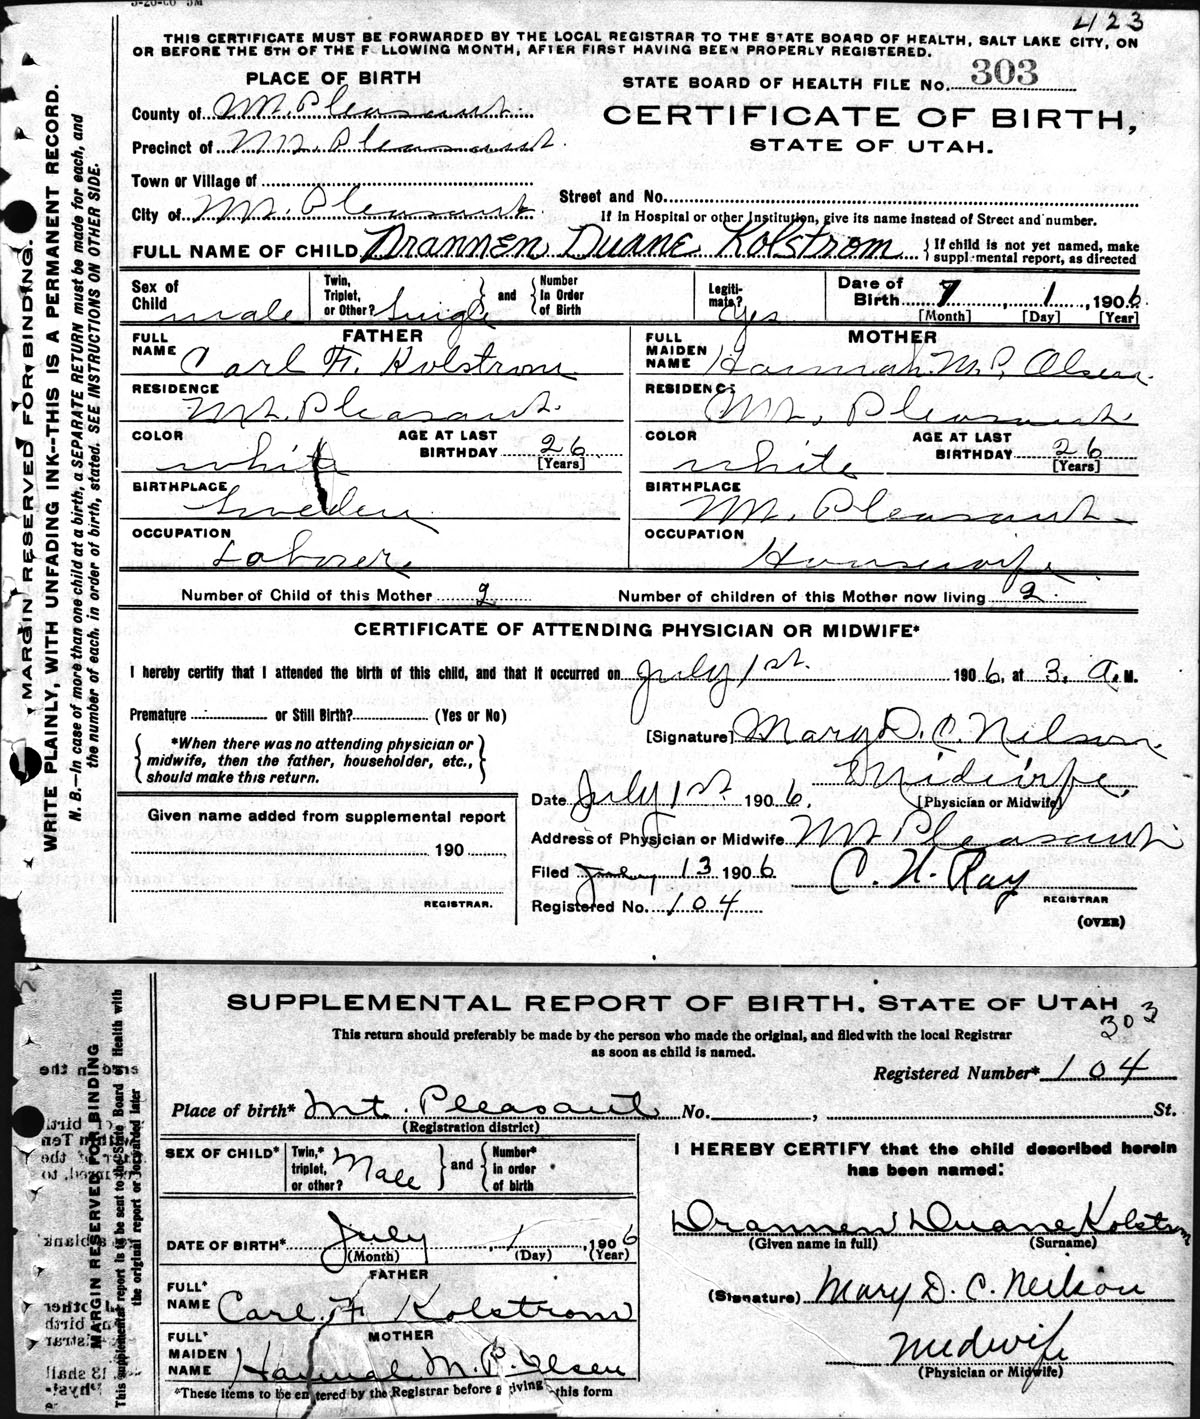 423
THIS CERTIFICATE MUST BE FORWARDED BY THE LOCAL REGISTRAR TO THE STATE BOARD OF HEALTH, SALT LAKE CITY, ON
OR BEFORE THE 5TH OF THE F LLOWING MONTH, AFTER FIRST HAVING BEEN PROPERLY REGISTERED.
PLACE OF BIRTH
STATE BOARD OF HEALTH FILE No. 303
County of Mt. Pleasant
CERTIFICATE OF BIRTH,
Precinct of Mt. Pleasant
STATE OF UTAH.
Town or Village of
Street and No.
City of Mt. Pleasant
If in Hospital or other Institution, give its name instead of Street and number.
FULL NAME OF CHILD Drannen Duane Kolstrom
If child is not yet named, make
suppl mental report, as directed
Sex of Child male
Twin, Triplet, or Other? Single and Number In Order of Birth
Legiti- mate? Yes
Date of Birth 7, 1, 1906
[Month] [Day] [Year]
FATHER
MOTHER
FULL NAME Carl F. Kolstrom
FULL MAIDEN NAME Hannah M. P. Olsen
RESIDENCE Mt. Pleasant
RESIDENCE Mt. Pleasant
COLOR white AGE AT LAST BIRTHDAY 26 [Years]
COLOR white AGE AT LAST BIRTHDAY 26 [Years]
BIRTHPLACE Sweden
BIRTHPLACE Mt. Pleasant
OCCUPATION Laborer
OCCUPATION Housewife
Number of Child of this Mother 2 Number of children of this Mother now living 2
CERTIFICATE OF ATTENDING PHYSICIAN OR MIDWIFE*
I hereby certify that I attended the birth of this child, and that it occurred on July 1st. 1906, at 3. A.M.
Premature or Still Birth? (Yes or No)
[Signature] Mary D. C. Nilson
*When there was no attending physician or
midwife, then the father, householder, etc.,
should make this return.
Midwife,
[Physician or Midwife]
Date July 1st 1906.
Given name added from supplemental report
190
REGISTRAR.
Address of Physician or Midwife Mt Pleasant
Filed 13 1906 C. N. Ray
REGISTRAR
Registered No. 104
(OVER)
MARGIN RESERVED FOR BINDING.
WRITE PLAINLY, WITH UNFADING INK--THIS IS A PERMANENT RECORD.
N. B.—In case of more than one child at a birth, a SEPARATE RETURN must be made for each, and
the number of each, in order of birth, stated. SEE INSTRUCTIONS ON OTHER SIDE.
SUPPLEMENTAL REPORT OF BIRTH. STATE OF UTAH
303
This return should preferably be made by the person who made the original, and filed with the local Registrar
as soon as child is named.
Registered Number* 104
Place of birth* Mt. Pleasant No. , St.
(Registration district)
SEX OF CHILD* Twin,* triplet, or other? Male and Number* in order of birth
I HEREBY CERTIFY that the child described herein
has been named:
Drannen Duane Kolstrom
(Given name in full) (Surname)
DATE OF BIRTH* July, 1, 1906
(Month) (Day) (Year)
FATHER
FULL* NAME Carl. F. Kolstrom
(Signature) Mary D. C. Neilson
MOTHER
FULL* MAIDEN NAME Hannah M. P. Olsen
Midwife
(Physician or Midwife)
*These items to be entered by the Registrar before giving this form
MARGIN RESERVED FOR BINDING
This supplemental report is to be sent to the State Board of Health with
the original report or forwarded later